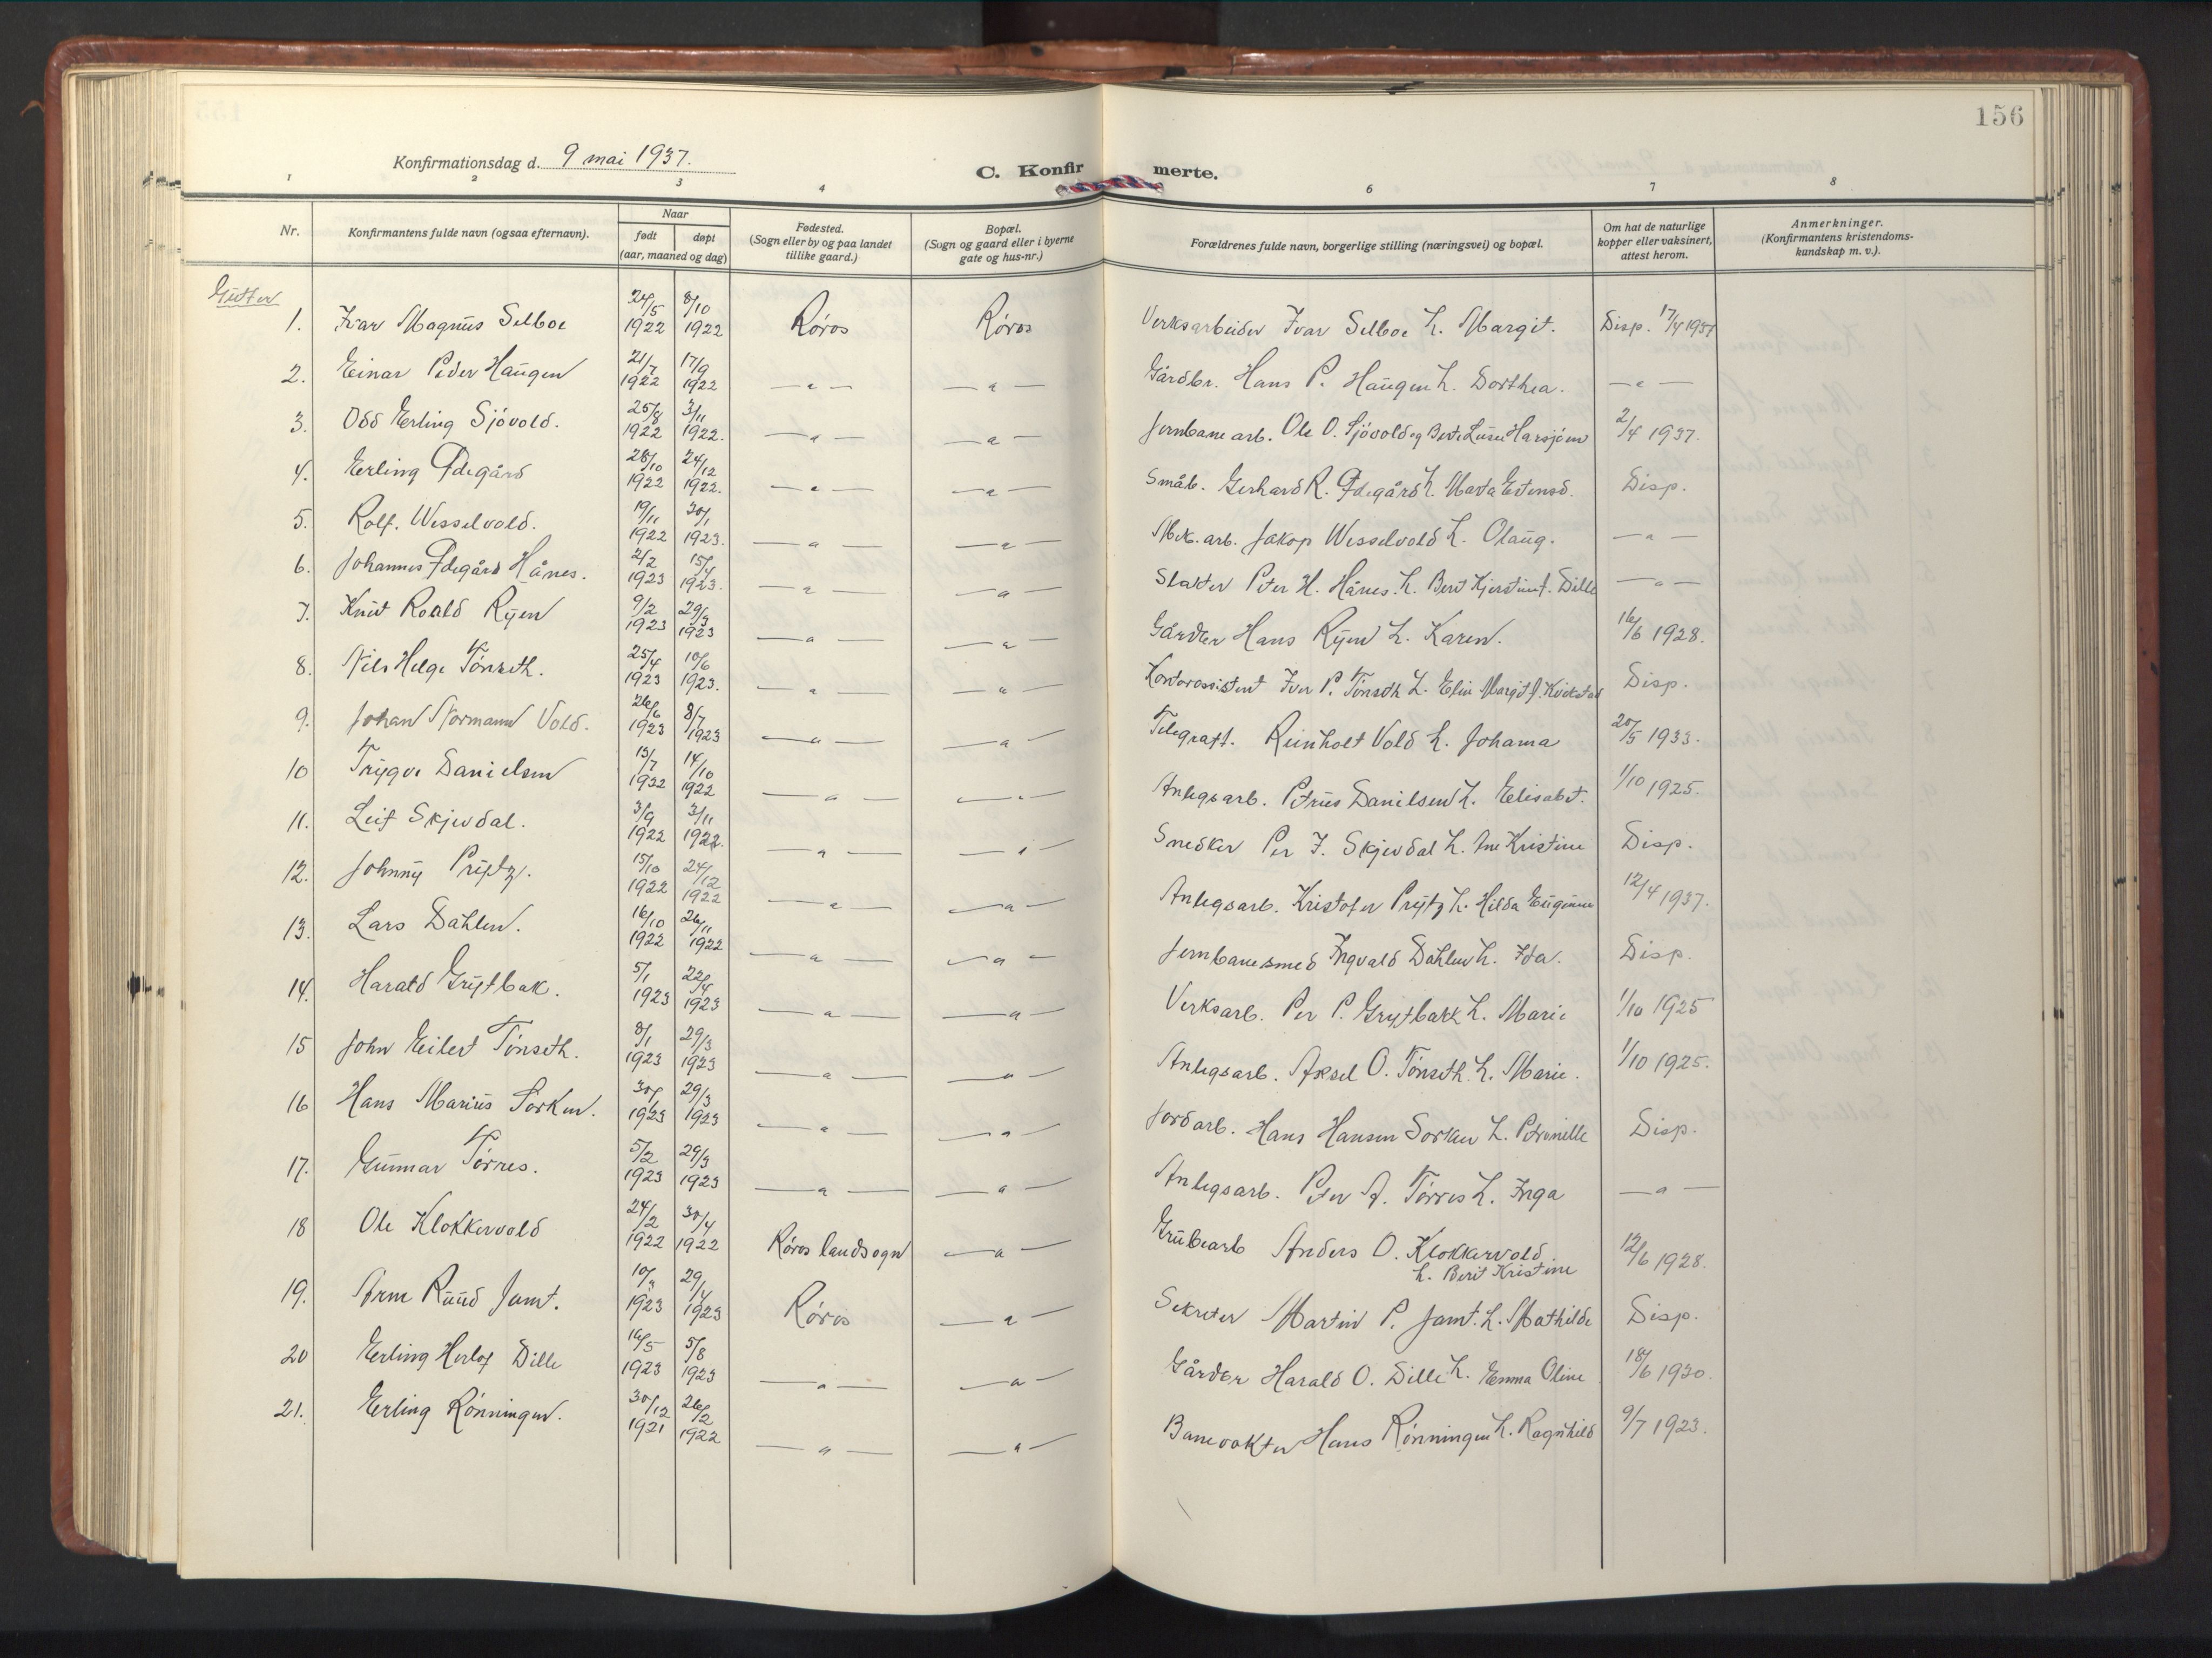 156
Konfirmationsdag d. 9 mai 1937.
C. Konfirmerte.
1 2 3 4 6 7 8
Nr.
Konfirmantens fulde navn (ogsaa efternavn).
Naar
født døpt
(aar, maaned og dag)
Fødested.
(Sogn eller by og paa landet
tillike gaard.)
Bopæl.
(Sogn og gaard eller i byerne
gate og hus-nr.)
Forældrenes fulde navn, borgerlige stilling (næringsvei) og bopæl.
Om hat de naturlige
kopper eller vaksinert,
attest herom.
Anmerkninger.
(Konfirmantens kristendoms-
kundskap m. v.).
Gutter
1. Ivar Magnus Selboe 24/5 1922 8/10 1922 Røros Røros Verksarbeider Ivar Selboe h. Margit. Disp. 17/4 1937
2. Einar Peder Haugen 21/7 1922 17/9 1922 — " — — " — Gårdbr. Hans P. Haugen h. Dorthea. — " —
3. Odd Erling Sjøvold. 25/8 1922 3/11 1922. — " — — " — Jernbane arb. Ole O. Sjøvold og Harsjøen 2/4 1937.
4. Erling Ødegård 28/10 1922 24/12 1922. — " — — " — Småb. Gerhard R. Ødegård h. Marta Estensd. Disp.
5. Rolf. Wesselvold. 19/11 1922 30/1 1923. — " — — " — Mek. arb. Jakop Wesselvold h. Olaug. — " —
6. Johannes Ødegård Hånes. 2/2 1923 15/4 1923. — " — — " — Slakter Peter H. Hånes. h. Berit Kjerstine f. Dille — " —
7. Knut Roald Ryen 9/2 1923 29/3 1923 — " — — " — Gårdbr Hans Ryen h. Karen. 16/6 1928.
8. Nils Helge Tønseth. 25/4 1923 10/6 1923. — " — — " — Kontorassistent Iver P. Tønseth h. Elin Margit f. Disp.
9. Johan Normann Vold. 26/6 1923 8/7 1923 — " — — " — Telegraft. Reinholt Vold h. Johanna 20/5 1933.
10 Trygve Danielsen 13/7 1922 14/10 1922 — " — — " — Anlegsarb. Petrus Danilsen h. Elisabet. 1/10 1925.
11. Leif Skjevdal. 3/9 1922 3/11 1922. — " — — " — Snedker Per J. Skjevdal h. Ane Kristine Disp.
12. Johnny Prytz. 15/10 1922 24/12 1922 — " — — " — Anlegsarb. Kristofer Prytz h. Hilda Eugenie 12/4 1937.
13. Lars Dahlen. 16/10 1922 26/11 1922 — " — — " — Jernbanesmed Ingvald Dahlen h. Ida. Disp.
14. Harald Grytbak. 5/1 1923 22/4 1923 — " — — " — Verksarb. Per P. Grytbakk h. Marie 1/10 1925
15 John Eilert Tønseth. 8/1 1923 29/3 1923 — " — — " — Anlegsarb. Aksel O. Tønseth. h. Marie. 1/10 1925.
16 Hans Marius Sorken. 30/1 1923 29/3 1923 — " — — " — Jordarb. Hans Hansen Sorken h. Petronille Disp.
17. Gunnar Tørres. 5/2 1923 29/3 1923 — " — — " — Anlegsarb. Peter A. Tørres h. Inga — " —
18 Ole Klokkervold 24/2 1922 30/4 1922 Røros landsogn — " — Grubearb Anders O. Klokkervold. 12/6 1928.
h. Berit Kristine
19. Arne Ruud Jamt. 10/3 1923 29/4 1923 Røros — " — Sekreter Martin P. Jamt. h. Mathilde Disp.
20 Erling Herlof Dille 16/5 1923 5/8 1923 — " — — " — Gårdbr Harald O. Dille h. Emma Oline 18/6 1930.
21. Erling Rønningen. 30/12 1921 26/2 1922 — " — — " — Banevokter Hans Rønningen h. Ragnhild 9/7 1923.